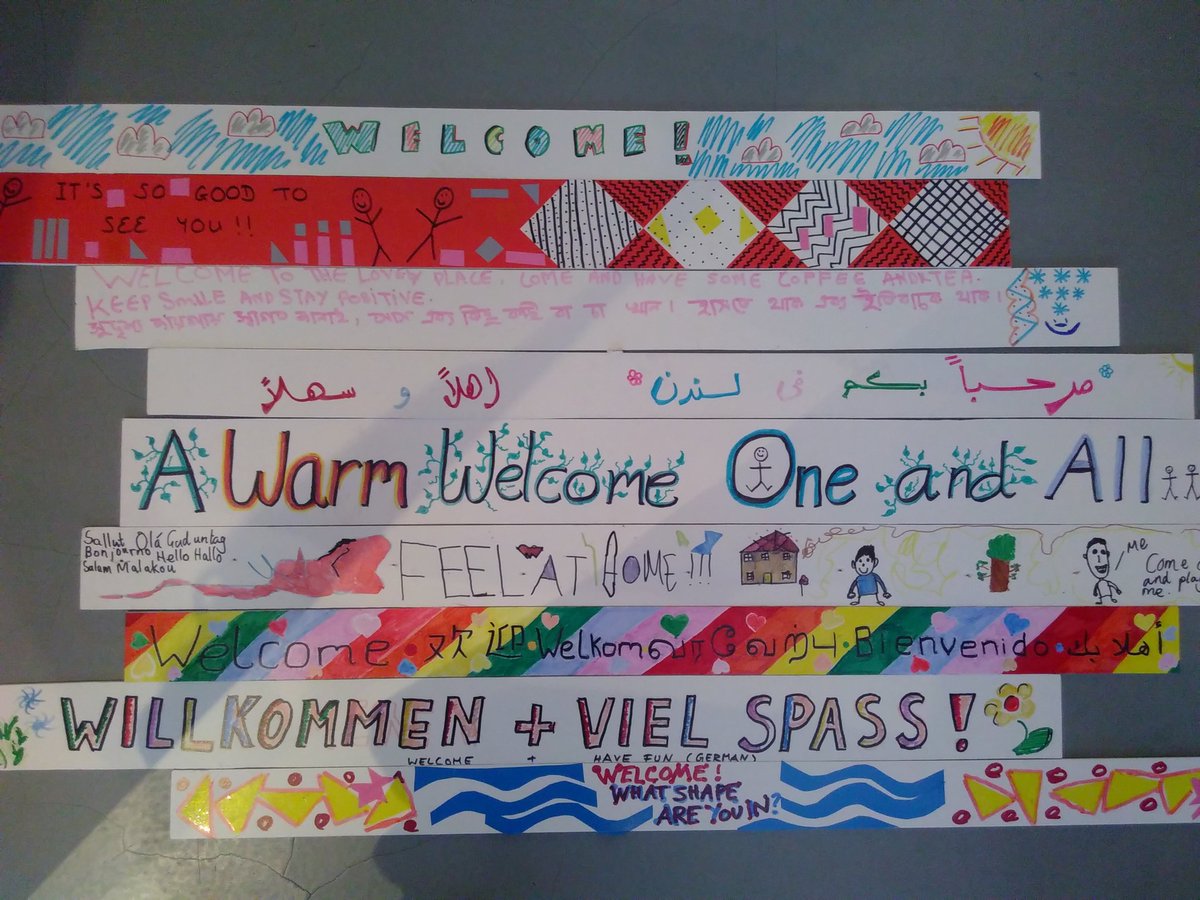 WELCOME!
IT'S SO GOOD TO
SEE YOU!!
WELCOME TO THE LOVELY PLACE. COME AND HAVE SOME COFFEE AND TEA.
KEEP SMILE AND STAY POSITIVE.
مرحباً بكم في لندن
اهلاً و سهلاً
A Warm Welcome One and All
Sallut Olá Guduntag
Bonjourno Hello Hallo
Salam Malakou
FEEL AT HOME!!!
Me
Come
and play
me.
Welcome · 欢迎 · Welkom வரவேற்பு · Bienvenido · أهلا بك
WILLKOMMEN + VIEL SPASS!
WELCOME + HAVE FUN (GERMAN)
WELCOME!
WHAT SHAPE
ARE YOU IN?